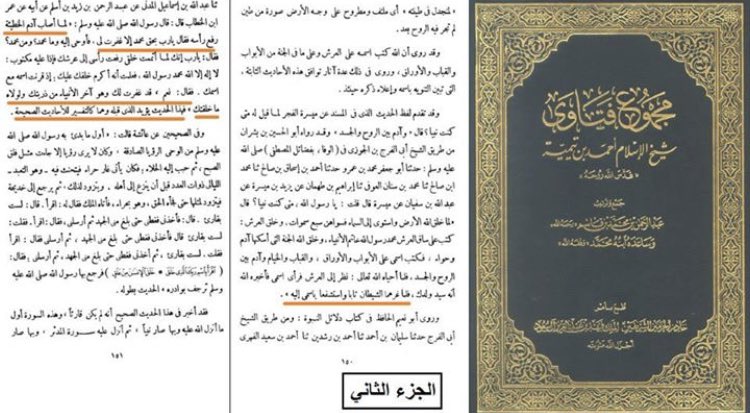 لمنجدل في طينته » أى ملتف ومطروح على وجه الأرض صورة من طين
لم تجر فيه الروح بعد .
وقد روى أن الله كتب اسمه على العرش وعلى ما في الجنة من الأبواب
والقباب والأوراق ، وروى في ذلك عدة آثار توافق هذه الأحاديث الثابتة ،
التى تبين التنويه باسمه وإعلاء ذكره حينئذ .
وقد تقدم لفظ الحديث الذى في المسند عن ميسرة الفجر لما قيل له متى
كنت نبيا ؟ قال « وآدم بين الروح والجسد » وقد رواه أبو الحسين بن بشران
من طريق الشيخ أبي الفرج بن الجوزى في ( الوفا ، بفضائل المصطفى ) صلى الله
عليه وسلم : حدثنا أبو جعفر محمد بن عمرو حدثنا أحمد بن إسحاق بن صالح ثنا محمد
ابن صالح ثنا محمد بن سنان العوفي ثنا إبراهيم بن طهمان عن يزيد بن ميسرة عن
عبد الله بن سفيان عن ميسرة قال قلت : يا رسول الله ، متى كنت نبيا ؟ قال
« لما خلق الله الأرض واستوى إلى السماء فسواهن سبع سموات ، وخلق العرش :
كتب على ساق العرش محمد رسول الله خاتم الأنبياء ، وخلق الله الجنة التى أسكنها آدم
وحواء ، فكتب اسمى على الأبواب والأوراق ، والقباب والخيام وآدم بين
الروح والجسد . فلما أحياه الله تعالى : نظر إلى العرش فرأى اسمى فأخبره الله
أنه سيد ولدك ، فلما غرهما الشيطان تابا واستشفعا باسمى إليه » .
وروى أبو نعيم الحافظ في كتاب دلائل النبوة : ومن طريق الشيخ
أبي الفرج حدثنا سليمان بن أحمد ثنا أحمد بن رشدين ثنا أحمد بن سعيد الفهرى
١٥٠
ثنا عبد الله بن إسماعيل المدنى عن عبد الرحمن بن زيد بن أسلم عن أبيه عن عمر
ابن الخطاب قال : قال رسول الله صلى الله عليه وسلم : « لما أصاب آدم الخطيئة
رفع رأسه فقال يارب بحق محمد إلا غفرت لى ، فأوحى إليه وما محمد ؟ ومن محمد ؟
فقال : يارب إنك لما أتممت خلقى رفعت رأسى إلى عرشك فإذا عليه مكتوب :
لا إله إلا الله محمد رسول الله . فعلمت أنه أكرم خلقك عليك ؛ إذ قرنت اسمه مع
اسمك . فقال : نعم ، قد غفرت لك وهو آخر الأنبياء من ذريتك ، ولولاه
ما خلقتك » فهذا الحديث يؤيد الذى قبله وهما كالتفسير للأحاديث الصحيحة .
وفى الصحيحين عن عائشة قالت : « أول ما بدئ به رسول الله صلى الله
عليه وسلم من الوحى الرؤيا الصادقة ، وكان لا يرى رؤيا إلا جاءت مثل فلق
الصبح ، ثم حبب إليه الخلاء ، فكان يأتى غار حراء فيتحنث فيه ـ وهو التعبد ـ
الليالى ذوات العدد قبل أن ينزع إلى أهله ، ويتزود لذلك ، ثم يرجع إلى خديجة
فيتزود لمثلها حتى فجأه الحق ، وهو بحراء ، فأتاه الملك فقال له : اقرأ . قال : لست
بقارئ . قال : فأخذنى فغطنى حتى بلغ منى الجهد ، ثم أرسلنى فقال : اقرأ . فقلت
لست بقارئ ، قال : ثم أخذنى فغطنى حتى بلغ منى الجهد ، ثم أرسلنى فقال : اقرأ .
فرجع بها رسول الله صلى الله عليه
وسلم ترجف بوادره » الحديث بطوله .
فقد أخبر فى هذا الحديث الصحيح أنه لم يكن قارئا ، وهذه السورة أول
ما أنزل الله عليه وبها صار نبيا ، ثم أنزل عليه سورة المدثر ، وبها صار
١٥١
الجزء الثاني
مجموع فتاوى
شيخ الإسلام أحمد بن تيمية
« قدس الله روحه »
جمع وترتيب
عبد الرحمن بن محمد بن قاسم « رحمه الله »
وساعده ابنه محمد « وفقه الله »
طبع بأمر